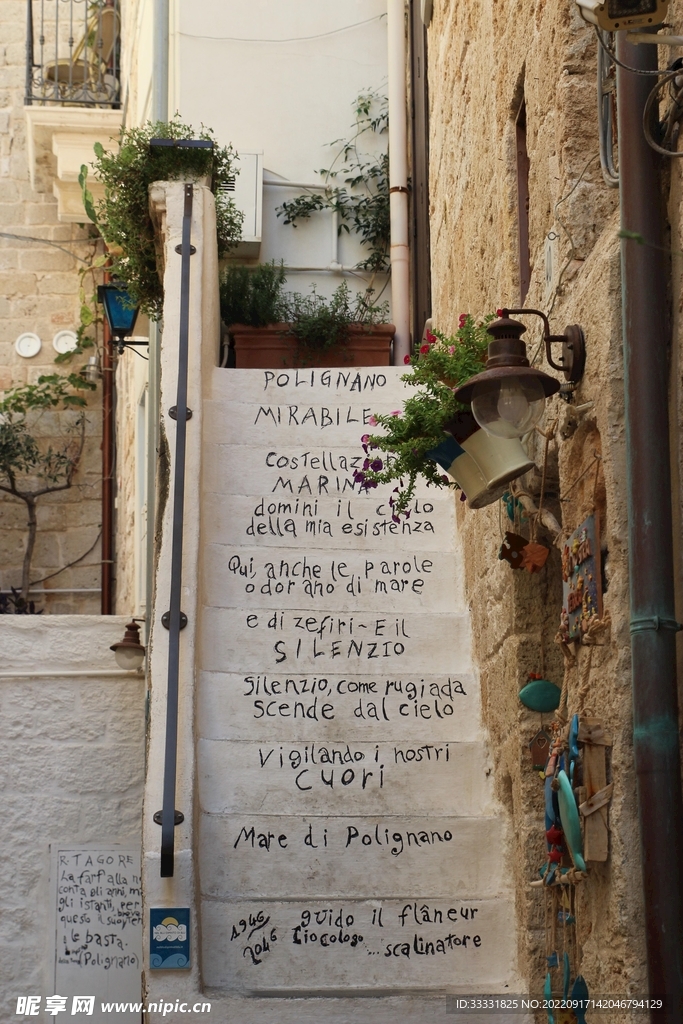 POLIGNANO
MIRABILE
COSTELLAZ
MARINA
domini il cielo
della mia esistenza
Qui, anche le parole
odorano di mare
e di zefiri- E il
SILENZIO
Silenzio, come rugiada
scende dal cielo
Vigilando i nostri
CUORI
Mare di Polignano
1946
2046
guido il flâneur
...scalinatore
R. TAGORE
La farfalla n
conta gli anni, m
gli istanti, per
questo il suo
basta.
(Polignano)
昵享网 www.nipic.cn
ID:33331825 NO:20220917142046794129